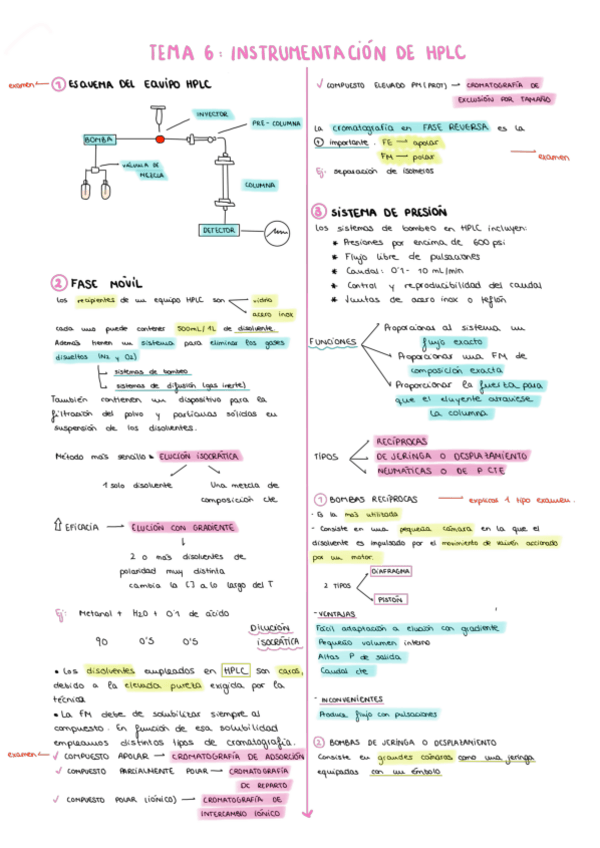 TEMA 6: INSTRUMENTACIÓN DE HPLC
examen
① ESQUEMA DEL EQUIPO HPLC
INYECTOR
PRE-COLUMNA
BOMBA
VÁLVULA DE
MEZCLA
COLUMNA
DETECTOR
② FASE MÓVIL
Los recipientes de un equipo HPLC son → vidrio
→ acero inox
cada uno puede contener 500mL/1L de disolvente.
Además tienen un sistema para eliminar los gases
disueltos (N2 y O2)
sistemas de bombeo
sistemas de difusión (gas inerte)
También contienen un dispositivo para la
filtración del polvo y partículas sólidas en
suspensión de los disolventes.
Método más sencillo → ELUCIÓN ISOCRÁTICA
1 solo disolvente
Una mezcla de
composición cte
⇑ EFICACIA → ELUCIÓN CON GRADIENTE
2 o más disolventes de
polaridad muy distinta
cambia la [] a lo largo del T
Ej: Metanol + H2O + 0'1 de ácido
DILUCIÓN
90 0'5 0'5 ISOCRÁTICA
• Los disolventes empleados en HPLC son caros,
debido a la elevada pureza exigida por la
técnica
• La FM debe de solubilizar siempre al
compuesto. En función de esa solubilidad
empleamos distintos tipos de cromatografía.
examen ← ✓ COMPUESTO APOLAR → CROMATOGRAFÍA DE ADSORCIÓN
✓ COMPUESTO PARCIALMENTE POLAR → CROMATOGRAFÍA
DE REPARTO
✓ COMPUESTO POLAR (IÓNICO) → CROMATOGRAFÍA DE
INTERCAMBIO IÓNICO
✓ COMPUESTO ELEVADO PM (PROT) → CROMATOGRAFÍA DE
EXCLUSIÓN POR TAMAÑO
La cromatografía en FASE REVERSA es la
⊕ importante. FE → apolar
FM → polar
examen
Ej: separación de isómeros
③ SISTEMA DE PRESIÓN
Los sistemas de bombeo en HPLC incluyen:
* Presiones por encima de 600 psi
* Flujo libre de pulsaciones
* Caudal: 0'1- 10 mL/min
* Control y reproducibilidad del caudal
* Juntas de acero inox o teflón
FUNCIONES
Proporcionar al sistema un
flujo exacto
Proporcionar una FM de
composición exacta
Proporcionar la fuerza para
que el eluyente atraviese
la columna
TIPOS
RECÍPROCAS
DE JERINGA O DESPLAZAMIENTO
NEUMÁTICAS O DE P CTE
① BOMBAS RECÍPROCAS → explicar 1 tipo examen.
- Es la más utilizada
- Consiste en una pequeña cámara en la que el
disolvente es impulsado por el movimiento de vaivén accionado
por un motor.
2 TIPOS
DIAFRAGMA
PISTÓN
- VENTAJAS
Fácil adaptación a elución con gradiente
Pequeño volumen interno
Altas P de salida
Caudal cte
- INCONVENIENTES
Produce flujo con pulsaciones
② BOMBAS DE JERINGA O DESPLAZAMIENTO
Consiste en grandes cámaras como una jeringa
equipadas con un émbolo